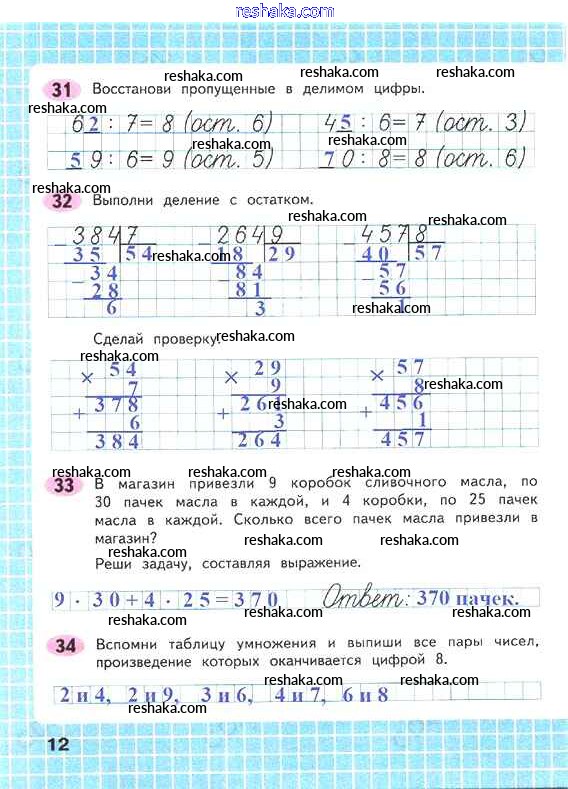 reshaka.com
reshaka.com reshaka.com reshaka.com
31 Восстанови пропущенные в делимом цифры.
reshaka.com reshaka.com reshaka.com
62 : 7 = 8 (ост. 6) 45 : 6 = 7 (ост. 3)
reshaka.com
59 : 6 = 9 (ост. 5) 70 : 8 = 8 (ост. 6)
reshaka.com reshaka.com reshaka.com
32 Выполни деление с остатком.
reshaka.com
384 7 264 9 457 8
35 54 18 29 40 57
reshaka.com reshaka.com
34 84 57
reshaka.com
28 81 56
6 3 1
Сделай проверку.
reshaka.com
reshaka.com
54 29 57
7 9 8
reshaka.com
378 261 456
reshaka.com
6 3 1
reshaka.com
384 264 457
reshaka.com reshaka.com reshaka.com
33 В магазин привезли 9 коробок сливочного масла, по
reshaka.com
30 пачек масла в каждой, и 4 коробки, по 25 пачек
reshaka.com
масла в каждой. Сколько всего пачек масла привезли в
магазин?
reshaka.com reshaka.com
Реши задачу, составляя выражение.
reshaka.com
9 · 30+4 · 25=370 Ответ: 370 пачек.
reshaka.com reshaka.com
reshaka.com
34 Вспомни таблицу умножения и выпиши все пары чисел,
произведение которых оканчивается цифрой 8.
reshaka.com reshaka.com reshaka.com
2 и 4, 2 и 9, 3 и 6, 4 и 7, 6 и 8
reshaka.com reshaka.com reshaka.com
12